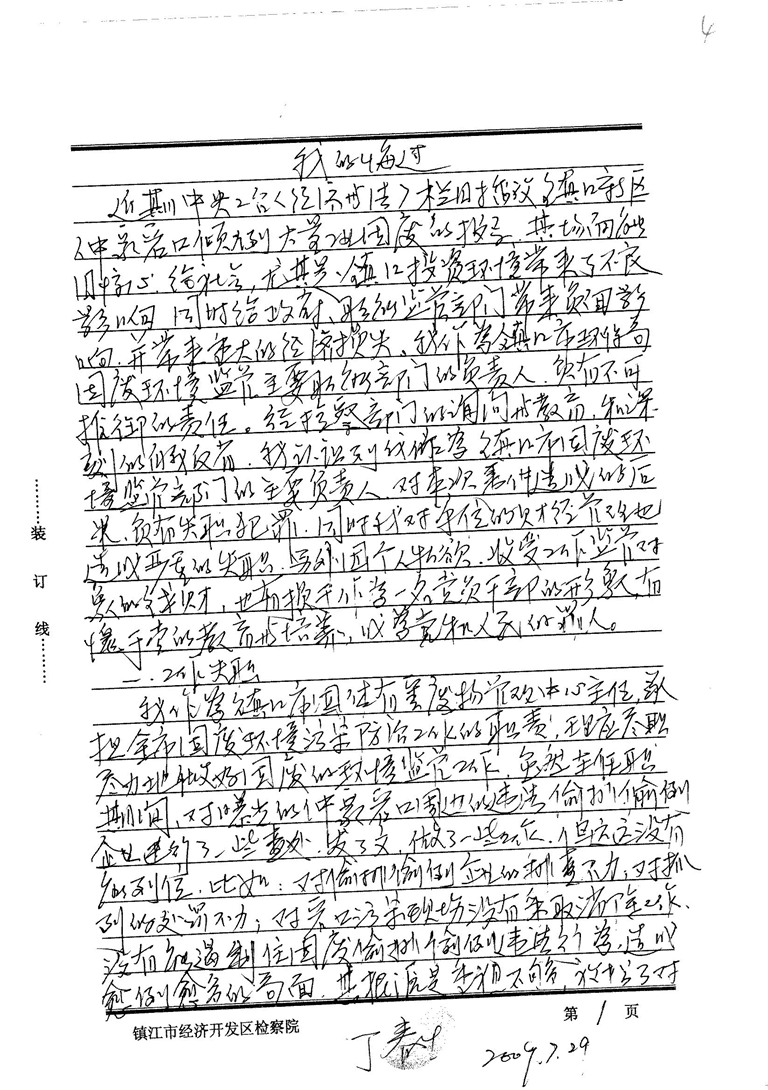 4
我的悔过
近期中央2台《经济与法》栏目播放了镇江新区
大量工业固废的报导,其场面触
目惊心,给社会,尤其是镇江投资环境带来了不良
影响,同时给政府、职能监管部门带来负面影
响,并带来重大的经济损失。我作为镇江市环保局
固废环境监管主要职能部门的负责人,负有不可
推卸的责任。经检察部门的询问与教育,和深
刻的自我反省,我认识到我作为镇江市固废环
境监管部门的主要负责人,对本次事件造成的后
果,负有失职犯罪,同时我对单位的财经管理也
造成严重的失职,另外因个人私欲,收受工作监管对
象的钱财,也有损于作为一名党员干部的形象,有
愧于党的教育与培养,成为党和人民的罪人。
一、工作失职
我作为镇江市固体有害废物管理中心主任,承
担全市固废环境污染防治工作的职责,理应尽职
尽力地做好固废的环境监管工作,虽然在任职
期间,对曝光的 周边的违法偷排偷倒
企业进行了一些查处,发了文,做了一些工作,但远远没有
做到位,比如:对偷排偷倒企业的排查不力;对抓
到的处罚不力;对 污染现场没有采取清除工作,
没有能遏制住固废偷排偷倒违法行为,造成
愈倒愈多的局面,其根源是重视不够,
装订线
镇江市经济开发区检察院
第 1 页
丁春
2009.7.29